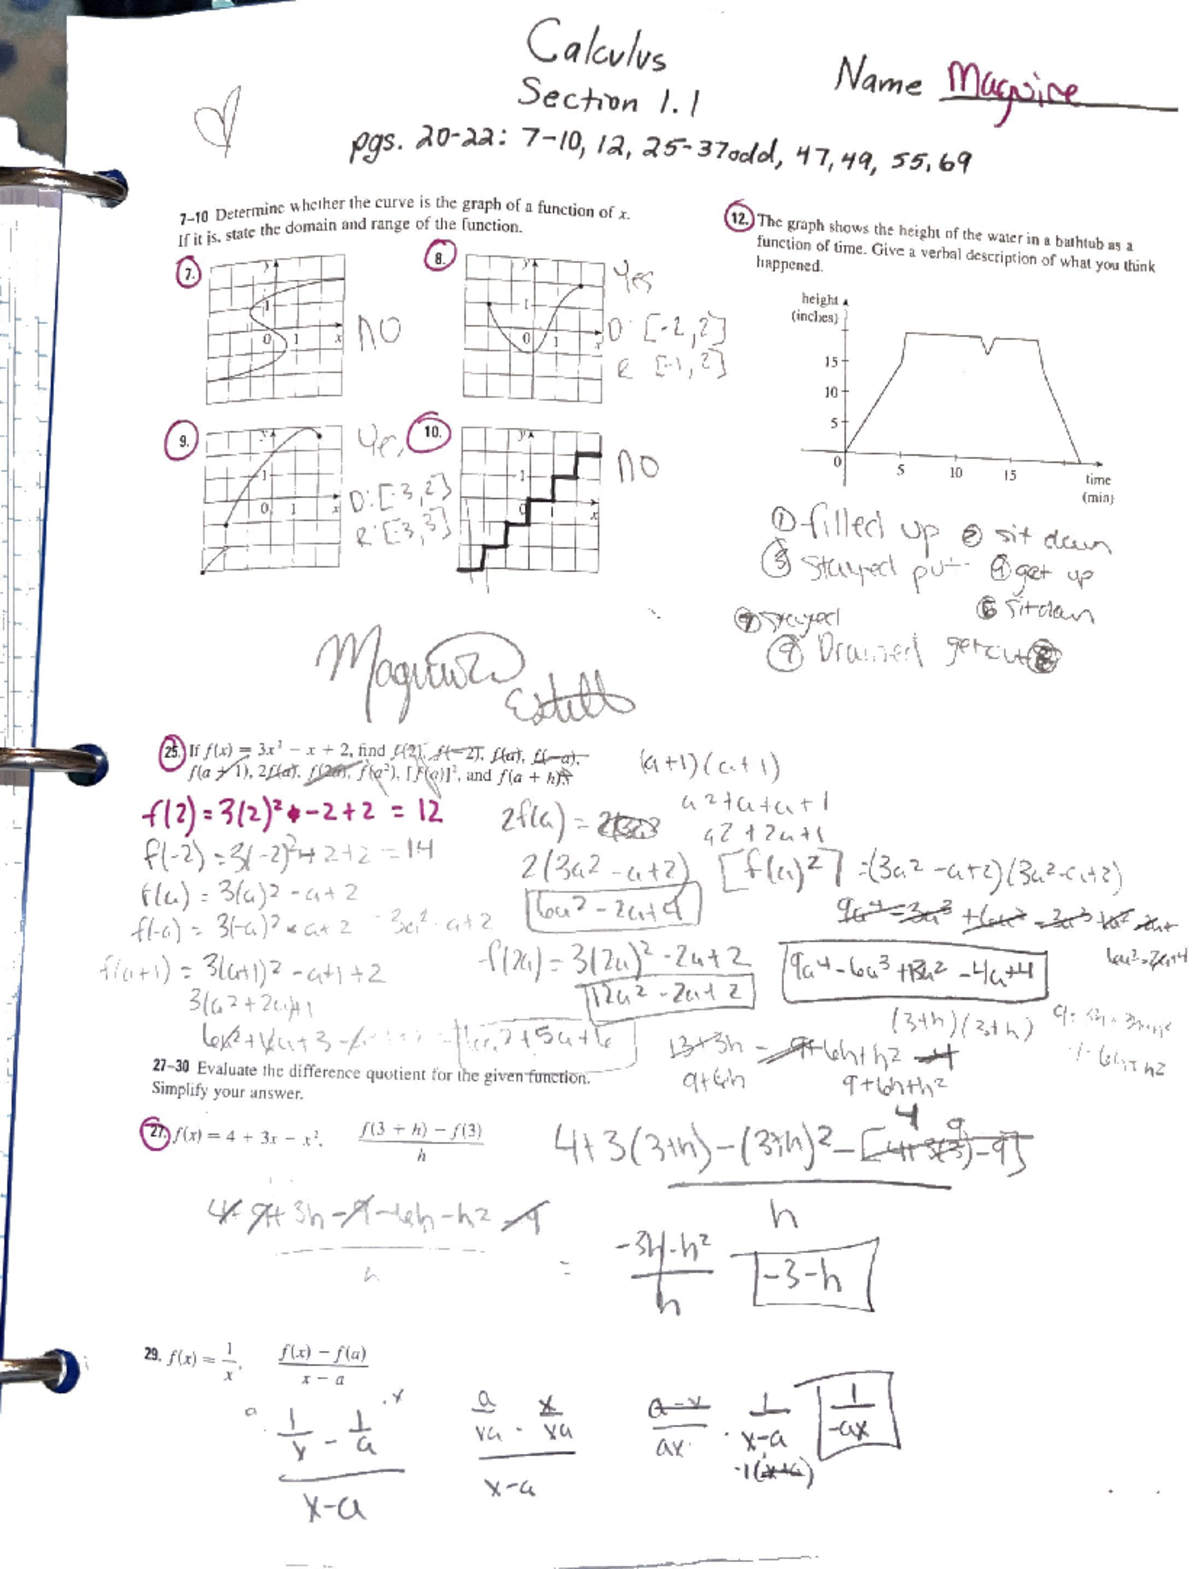 Calculus
Section 1.1
Name Maguire
pgs. 20-22: 7-10, 12, 25-37odd, 47, 49, 55, 69
7-10 Determine whether the curve is the graph of a function of x.
If it is, state the domain and range of the function.
7.
NO
8.
Yes
D: [-2, 2]
R [-1, 2]
9.
Yes
D: [-3, 2]
R: [-3, 3]
10.
NO
12. The graph shows the height of the water in a bathtub as a
function of time. Give a verbal description of what you think
happened.
height
(inches)
15
10
5
0
5 10 15
time
(min)
① filled up ② sit down
③ Stayed put ④ get up
⑥ sit down
⑦ stayed
⑨ Drained get out ⑧
Maguire
Estell
25. If f(x) = 3x² − x + 2, find f(2), f(−2), f(a), f(−a),
f(a + 1), 2f(a), f(2a), f(a²), [f(a)]², and f(a + h).
(a+1)(a+1)
a2+a+a+1
a2+2a+1
f(2) = 3(2)² -2+2 = 12
f(-2) = 3(-2)²+2+2 = 14
f(a) = 3(a)²-a+2
f(-a) = 3(-a)² a+2 3a²-a+2
f(a+1) = 3(a+1)²-a+1+2
3(a2+2a)+1
2f(a) =
2(3a2-a+2)
6a²-2a+4
f(2a) = 3(2a)²-2a+2
12a²-2a+2
[f(a)²] = (3a²-a+2)(3a²-a+2)
9a4-6a³+13a²-4a+4
6a²-2a+4
(3+h)(3+h)
9+6h+h²
27-30 Evaluate the difference quotient for the given function.
Simplify your answer.
27. f(x) = 4 + 3x − x², f(3 + h) − f(3) / h
4+3(3+h)-(3+h)²-[4+3(3)-9]
h
4+9+3h-9-6h-h2-4
h
= -3h-h² / h
-3-h
29. f(x) = 1/x, f(x) − f(a) / x − a
1/x - 1/a
x-a
a/xa - x/xa
x-a
a-x/ax · 1/x-a
1/-ax